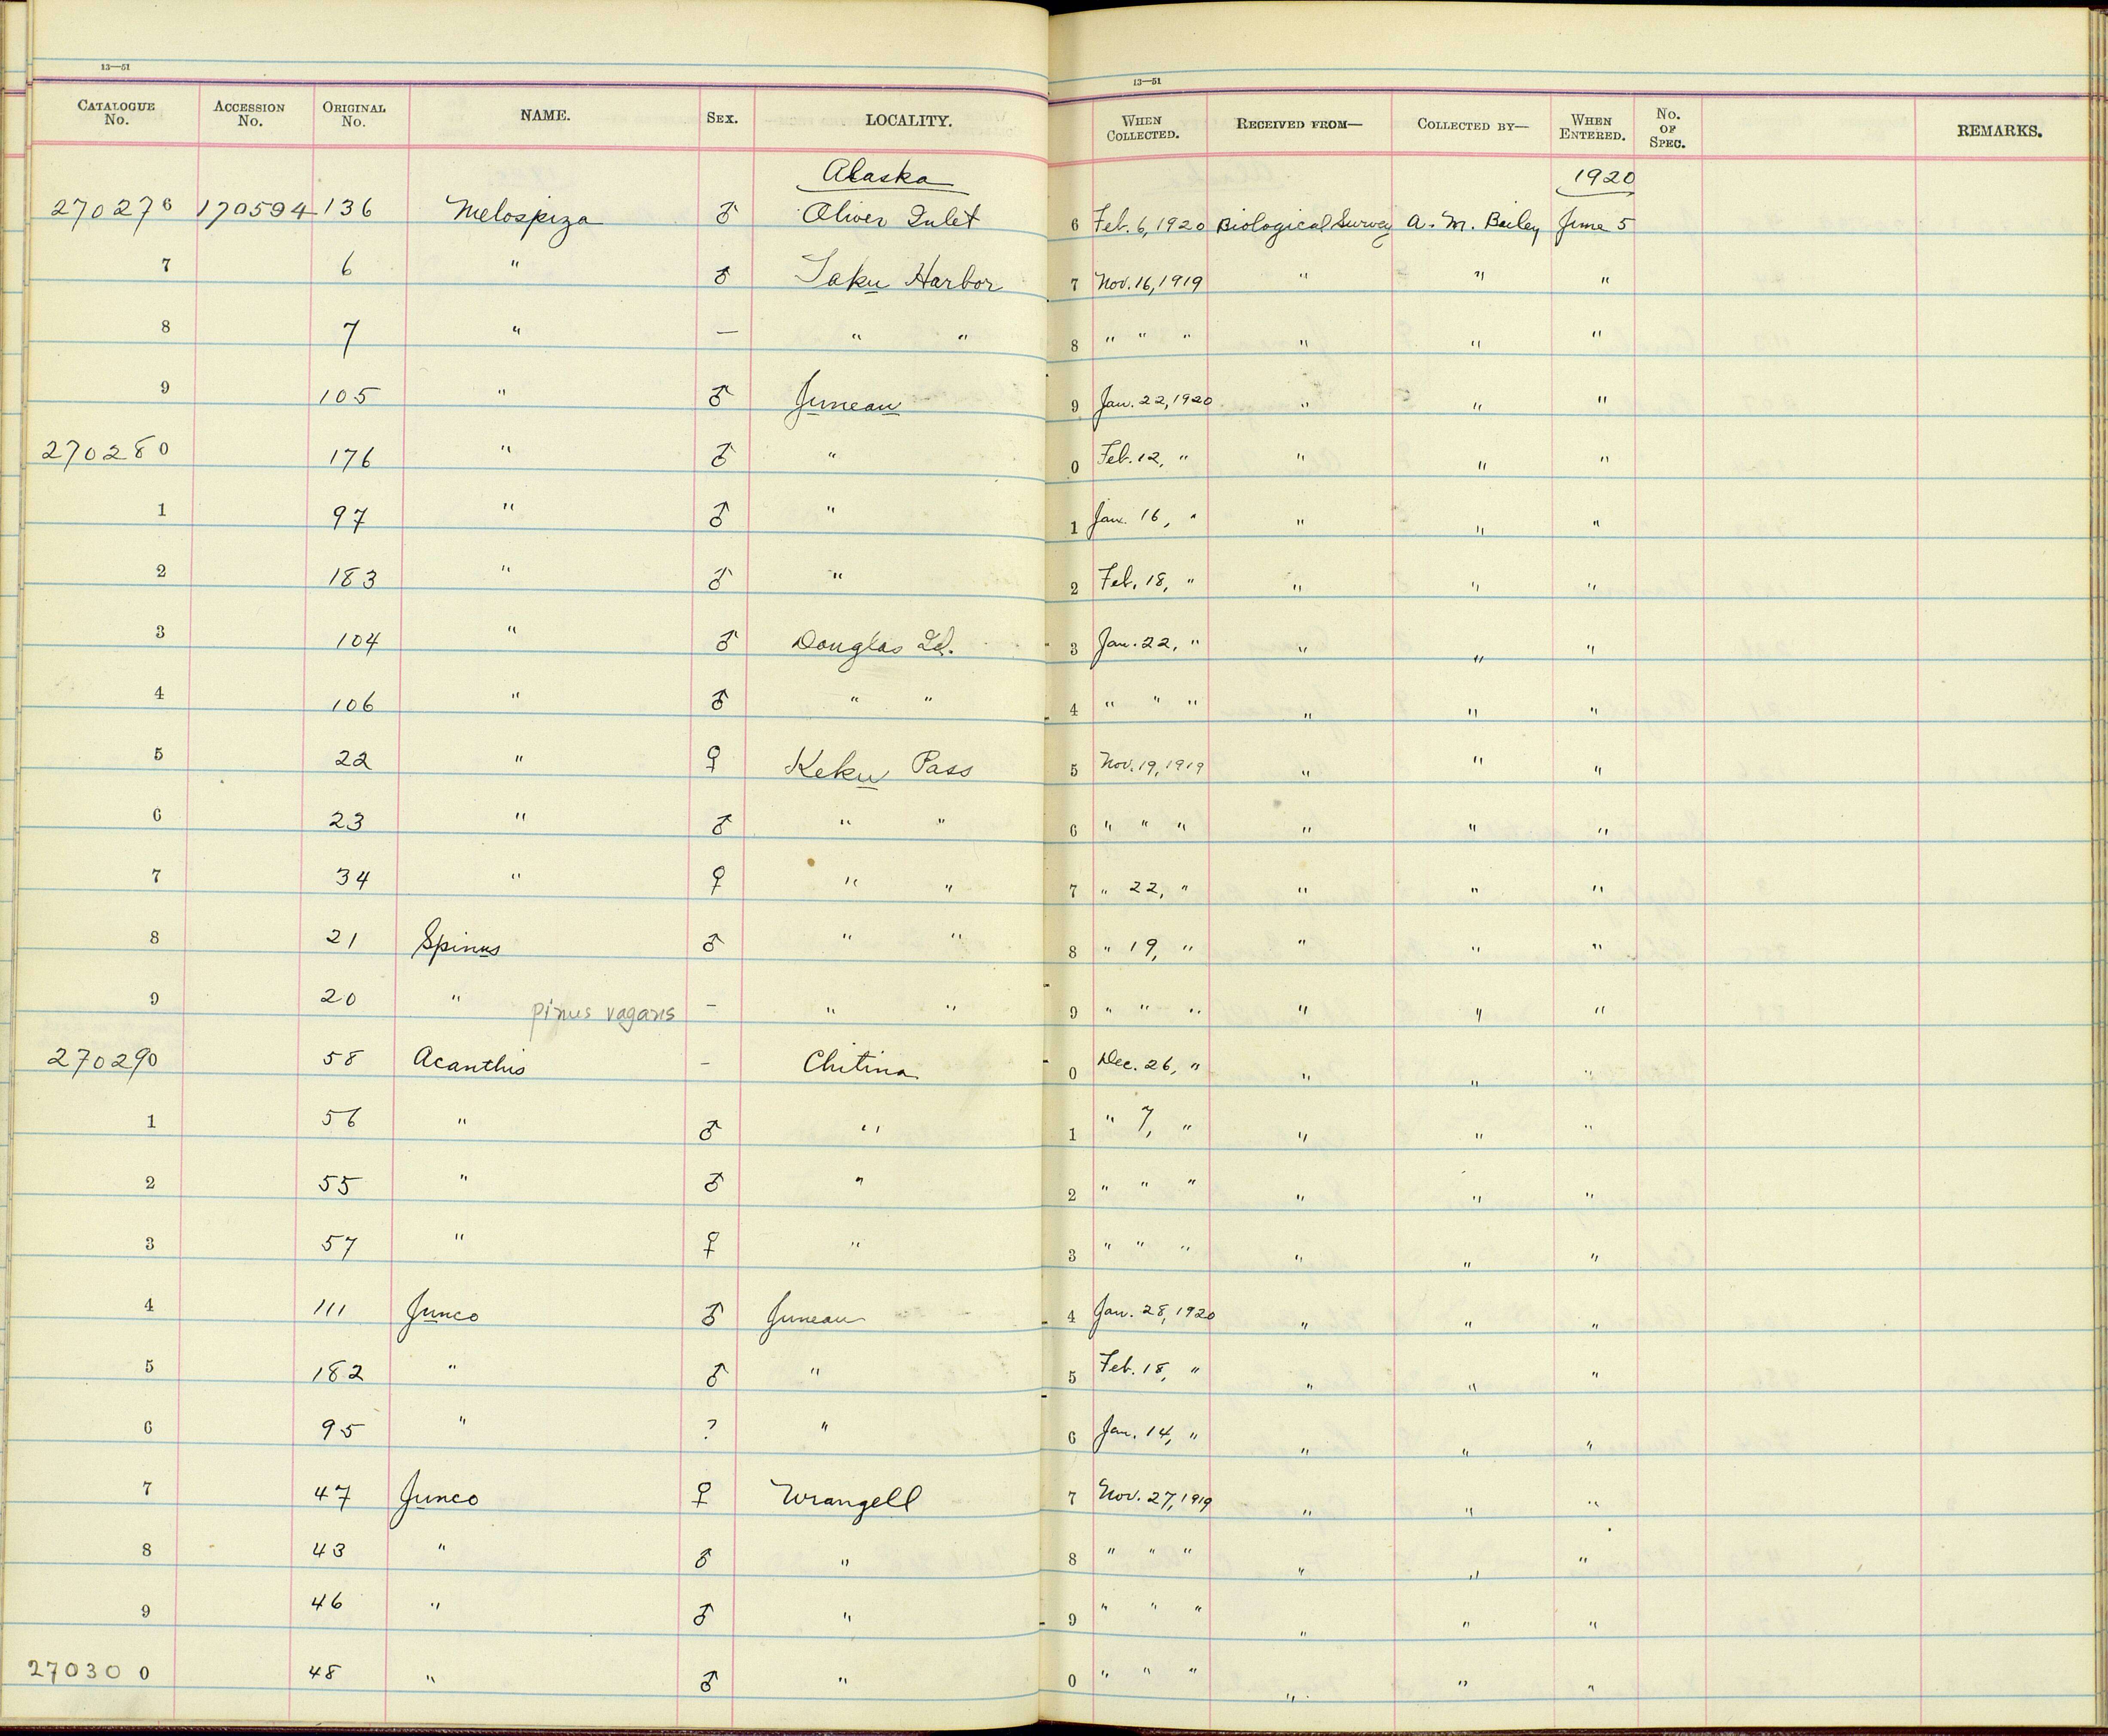 13—51
13—51
CATALOGUE No. ACCESSION No. ORIGINAL No. NAME. SEX. LOCALITY. WHEN COLLECTED. RECEIVED FROM— COLLECTED BY— WHEN ENTERED. No. OF SPEC. REMARKS.
Alaska 1920
270276 170594 136 Melospiza ♂ Oliver Inlet 6 Feb. 6, 1920 Biological Survey A. M. Bailey June 5
7 6 " ♂ Taku Harbor 7 Nov. 16, 1919 " " "
8 7 " — " " 8 " " " " " "
9 105 " ♂ Juneau 9 Jan. 22, 1920 " " "
270280 176 " ♂ " 0 Feb. 12, " " " "
1 97 " ♂ " 1 Jan. 16, " " " "
2 183 " ♂ " 2 Feb. 18, " " " "
3 104 " ♂ Douglas Id. 3 Jan. 22, " " " "
4 106 " ♂ " " 4 " " " " " "
5 22 " ♀ Keku Pass 5 Nov. 19, 1919 " " "
6 23 " ♂ " " 6 " " " " " "
7 34 " ♀ " " 7 " 22, " " " "
8 21 Spinus ♂ " " 8 " 19, " " " "
9 20 " pinus vagans – " " 9 " " " " " "
270290 58 Acanthis – Chitina 0 Dec. 26, " " " "
1 56 " ♂ " 1 " 7, " " " "
2 55 " ♂ " 2 " " " " " "
3 57 " ♀ " 3 " " " " " "
4 111 Junco ♂ Juneau 4 Jan. 28, 1920 " " "
5 182 " ♂ " 5 Feb. 18, " " " "
6 95 " ? " 6 Jan. 14, " " " "
7 47 Junco ♀ Wrangell 7 Nov. 27, 1919 " " "
8 43 " ♂ " 8 " " " " " "
9 46 " ♂ " 9 " " " " " "
270300 48 " ♂ " 0 " " " " " "